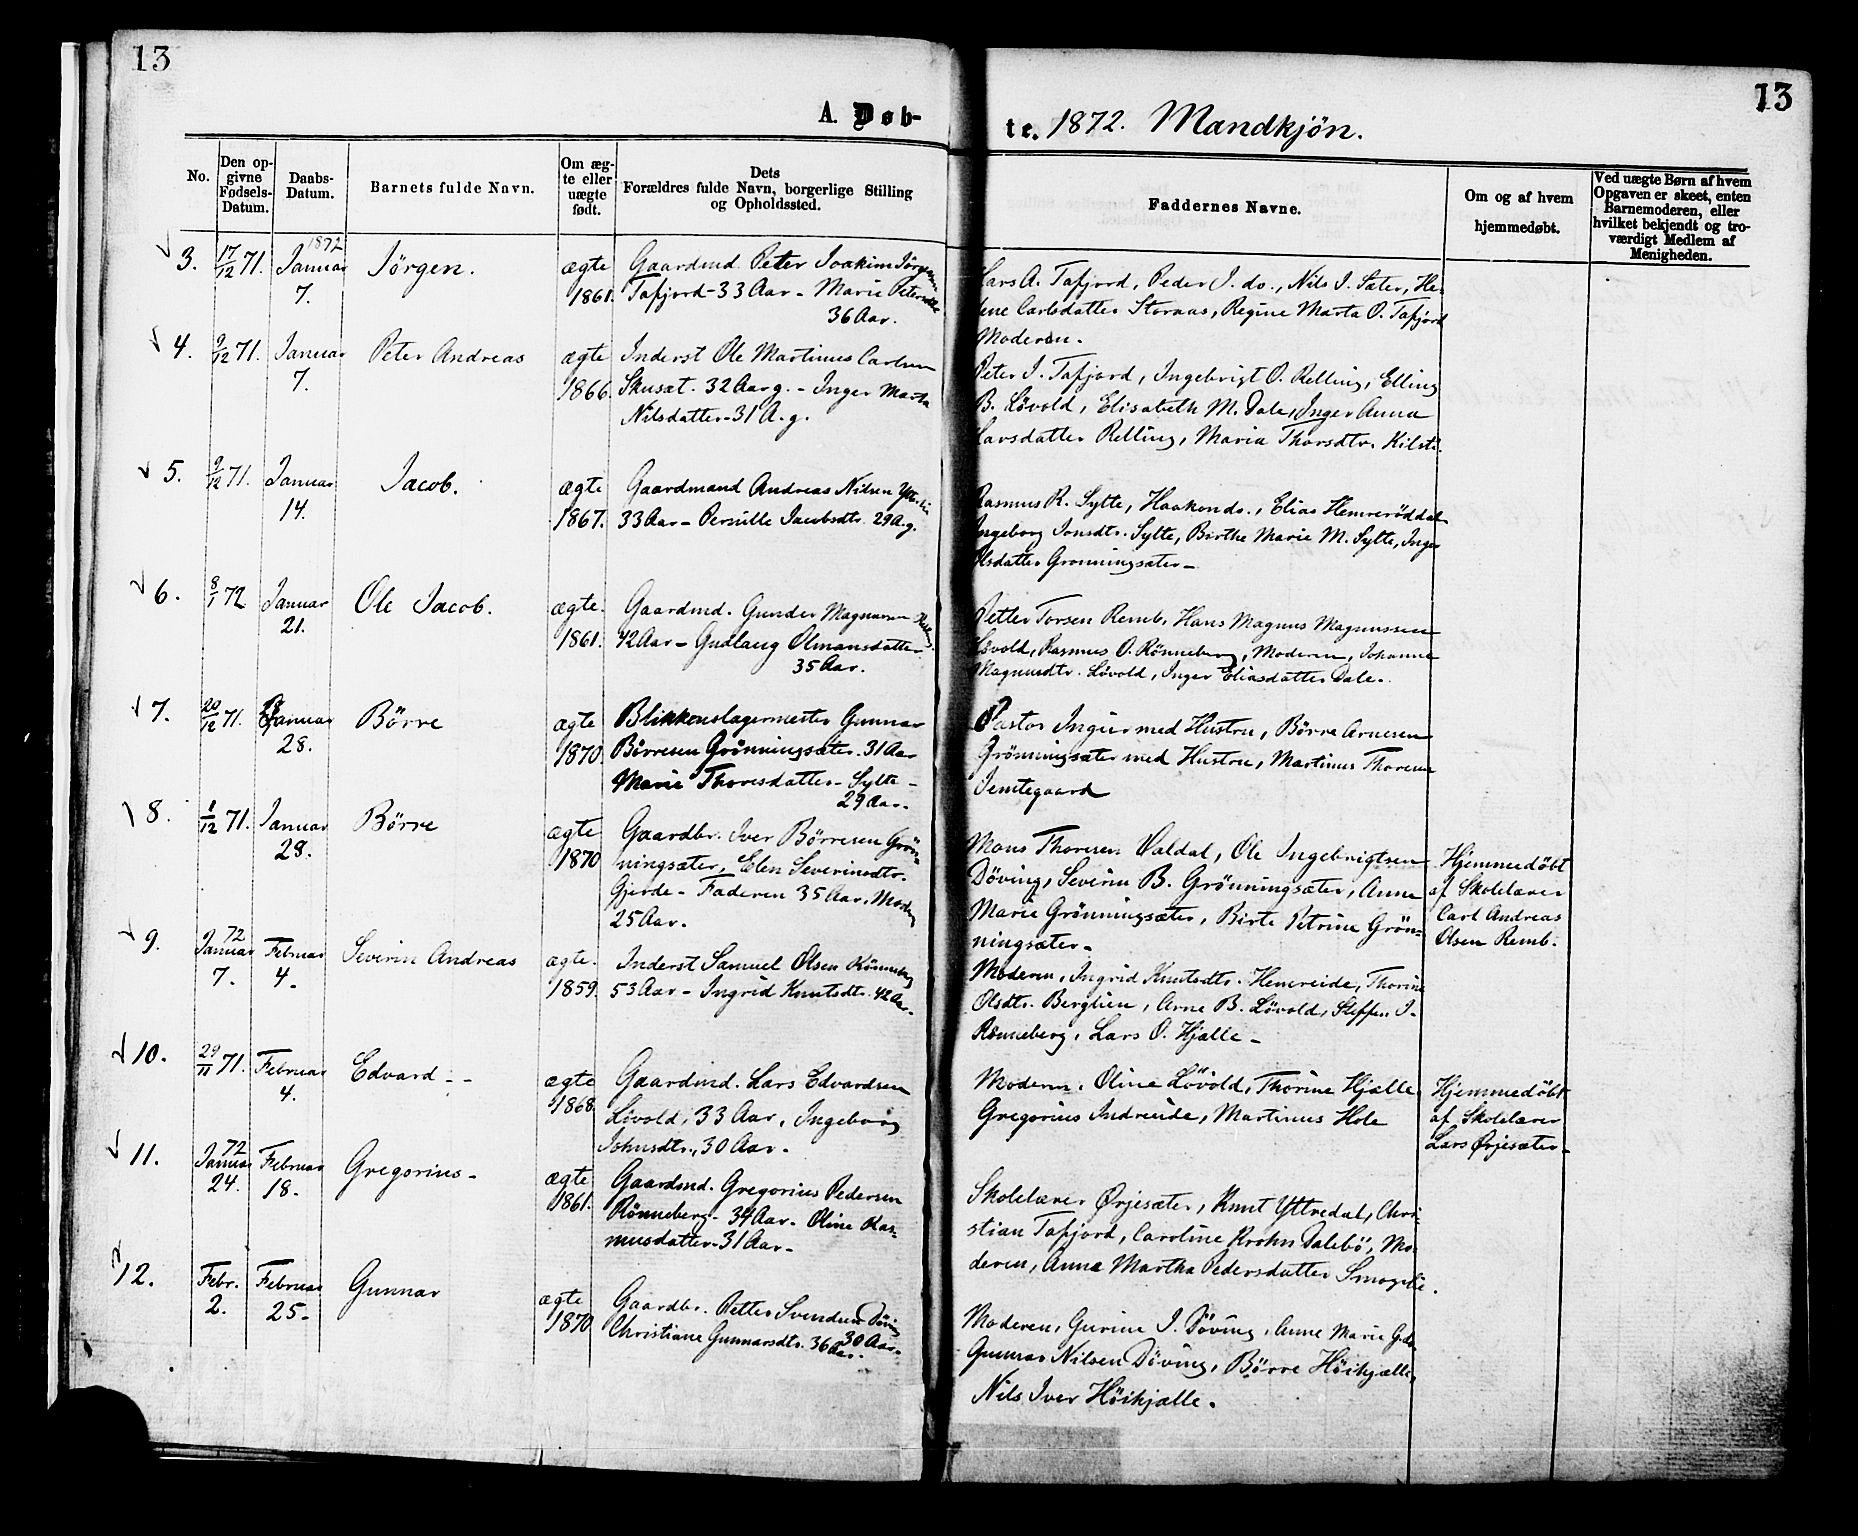 13
13
A. Døb-
te. 1872. Mandkjön.
No.
Den op-
givne
Fødsels-
Datum.
Daabs-
Datum.
Barnets fulde Navn.
Om æg-
te eller
uægte
født.
Dets
Forældres fulde Navn, borgerlige Stilling
og Opholdssted.
Faddernes Navne.
Om og af hvem
hjemmedøbt.
Ved uægte Børn af hvem
Opgaven er skeet, enten
Barnemoderen, eller
hvilket bekjendt og tro-
værdigt Medlem af
Menigheden.
3. 17/12 71. Januar 1872
7.
Jörgen.
ægte
1861.
Gaardmd. Peter Joakim
Tafjord - 33 Aar - Marie
36 Aar.
Lars A. Tafjord, Peder J. do., Nils J. Sæter, He-
lene Carlsdatter Stornæs, Regine Marta O. Tafjord
Moderen.
4. 9/12 71. Januar
7.
Peter Andreas
ægte
1866.
Inderst Ole Martinus Carlsen
Skusæt. 32 Aar g. - Inger Marta
Nilsdatter - 31 A. g.
Peter J. Tafjord, Ingebrigt O. Relling, Elling
B. Lövold, Elisabeth M. Dale, Inger Anna
Larsdatter Relling, Maria Thorsdtr. Kilsti.
5. 9/12 71. Januar
14.
Jacob.
ægte
1867.
Gaardmand Andreas Nilsen
33 Aar - Pernille Jacobsdtr. 29 A. g.
Rasmus R. Sylte, Haakon do., Elias Hemreröddal
Ingeborg Jonsdtr. Sylte, Birthe Marie M. Sylte, Inger
Olsdatter Grönningsæter -
6. 8/1 72 Januar
21.
Ole Jacob.
ægte.
1861.
Gaardmd. Gunder Magnussen
42 Aar - Gudlaug Olmansdatter
35 Aar.
Petter Torsen Remb, Hans Magnus Magnussen
Lövold, Rasmus O. Rönneberg, Moderen, Johanne
Magnusdtr. Lövold, Inger Eliasdatter Dale.
7. 20/12 71. Januar
28.
Börre
ægte
1870
Blikkenslagermester Gunnar
Börresen Grönningsæter. 31 Aar
Marie Thoresdatter - Sylte -
29 Aar.
Pastor Ingier med Hustru, Börre Arnesen
Grönningsæter med Hustru, Martinus Thoresen
Jemtegaard
8. 1/12 71. Januar
28.
Börre
ægte
1870
Gaardbr. Iver Börresen Grön-
ningsæter, Elen Severinsdtr.
Gjerde - Faderen 35 Aar, Moder
25 Aar.
Mons Thoresen Valdal, Ole Ingebrigtsen
Döving, Severin B. Grönningsæter, Anne
Marie Grönningsæter, Birte Petrine Grön-
ningsæter.
Hjemmedöbt
af Skolelærer
Carl Andreas
Olsen Remb.
9. 72
Januar
7.
Februar
4.
Severin Andreas
ægte.
1859.
Inderst Samuel Olsen Rönneberg
53 Aar - Ingrid Knutsdtr. 42 Aar.
Moderen, Ingrid Knutsdtr. Hemreide, Thorine
Olsdtr. Berglien, Arne B. Lövold, Steffen J.
Rönneberg, Lars O. Hjælle -
10. 29/11 71. Februar
4.
Edvard - -
ægte
1868.
Gaardmd. Lars Edvardsen
Lövold, 33 Aar, Ingeborg
Johnsdtr., 30 Aar.
Moderen, Oline Lövold, Thorine Hjælle,
Gregorius Indreeide, Martinus Hole
Hjemmedöbt
af Skolelærer
Lars Ørjesæter -
11. 72
Januar
24.
Februar
18.
Gregorius -
ægte
1861.
Gaardmd. Gregorius Pedersen
Rönneberg - 34 Aar. Oline Ras-
musdatter - 31 Aar -
Skolelærer Ørjesæter, Knut Yttredal, Chri-
stian Tafjord, Caroline Krohn Dalebö, Mo-
deren, Anna Martha Pedersdatter Smogelie.
12. Febr.
2.
Februar
25.
Gunnar
ægte
1870
Gaardbr. Petter Svendsen Döving
30 Aar.
Christiane Gunnarsdtr. 36 Aar.
Moderen, Gurine J. Döving, Anne Marie
Gunnar Nilsen Döving, Börre Höihjælle,
Nils Iver Höihjælle.